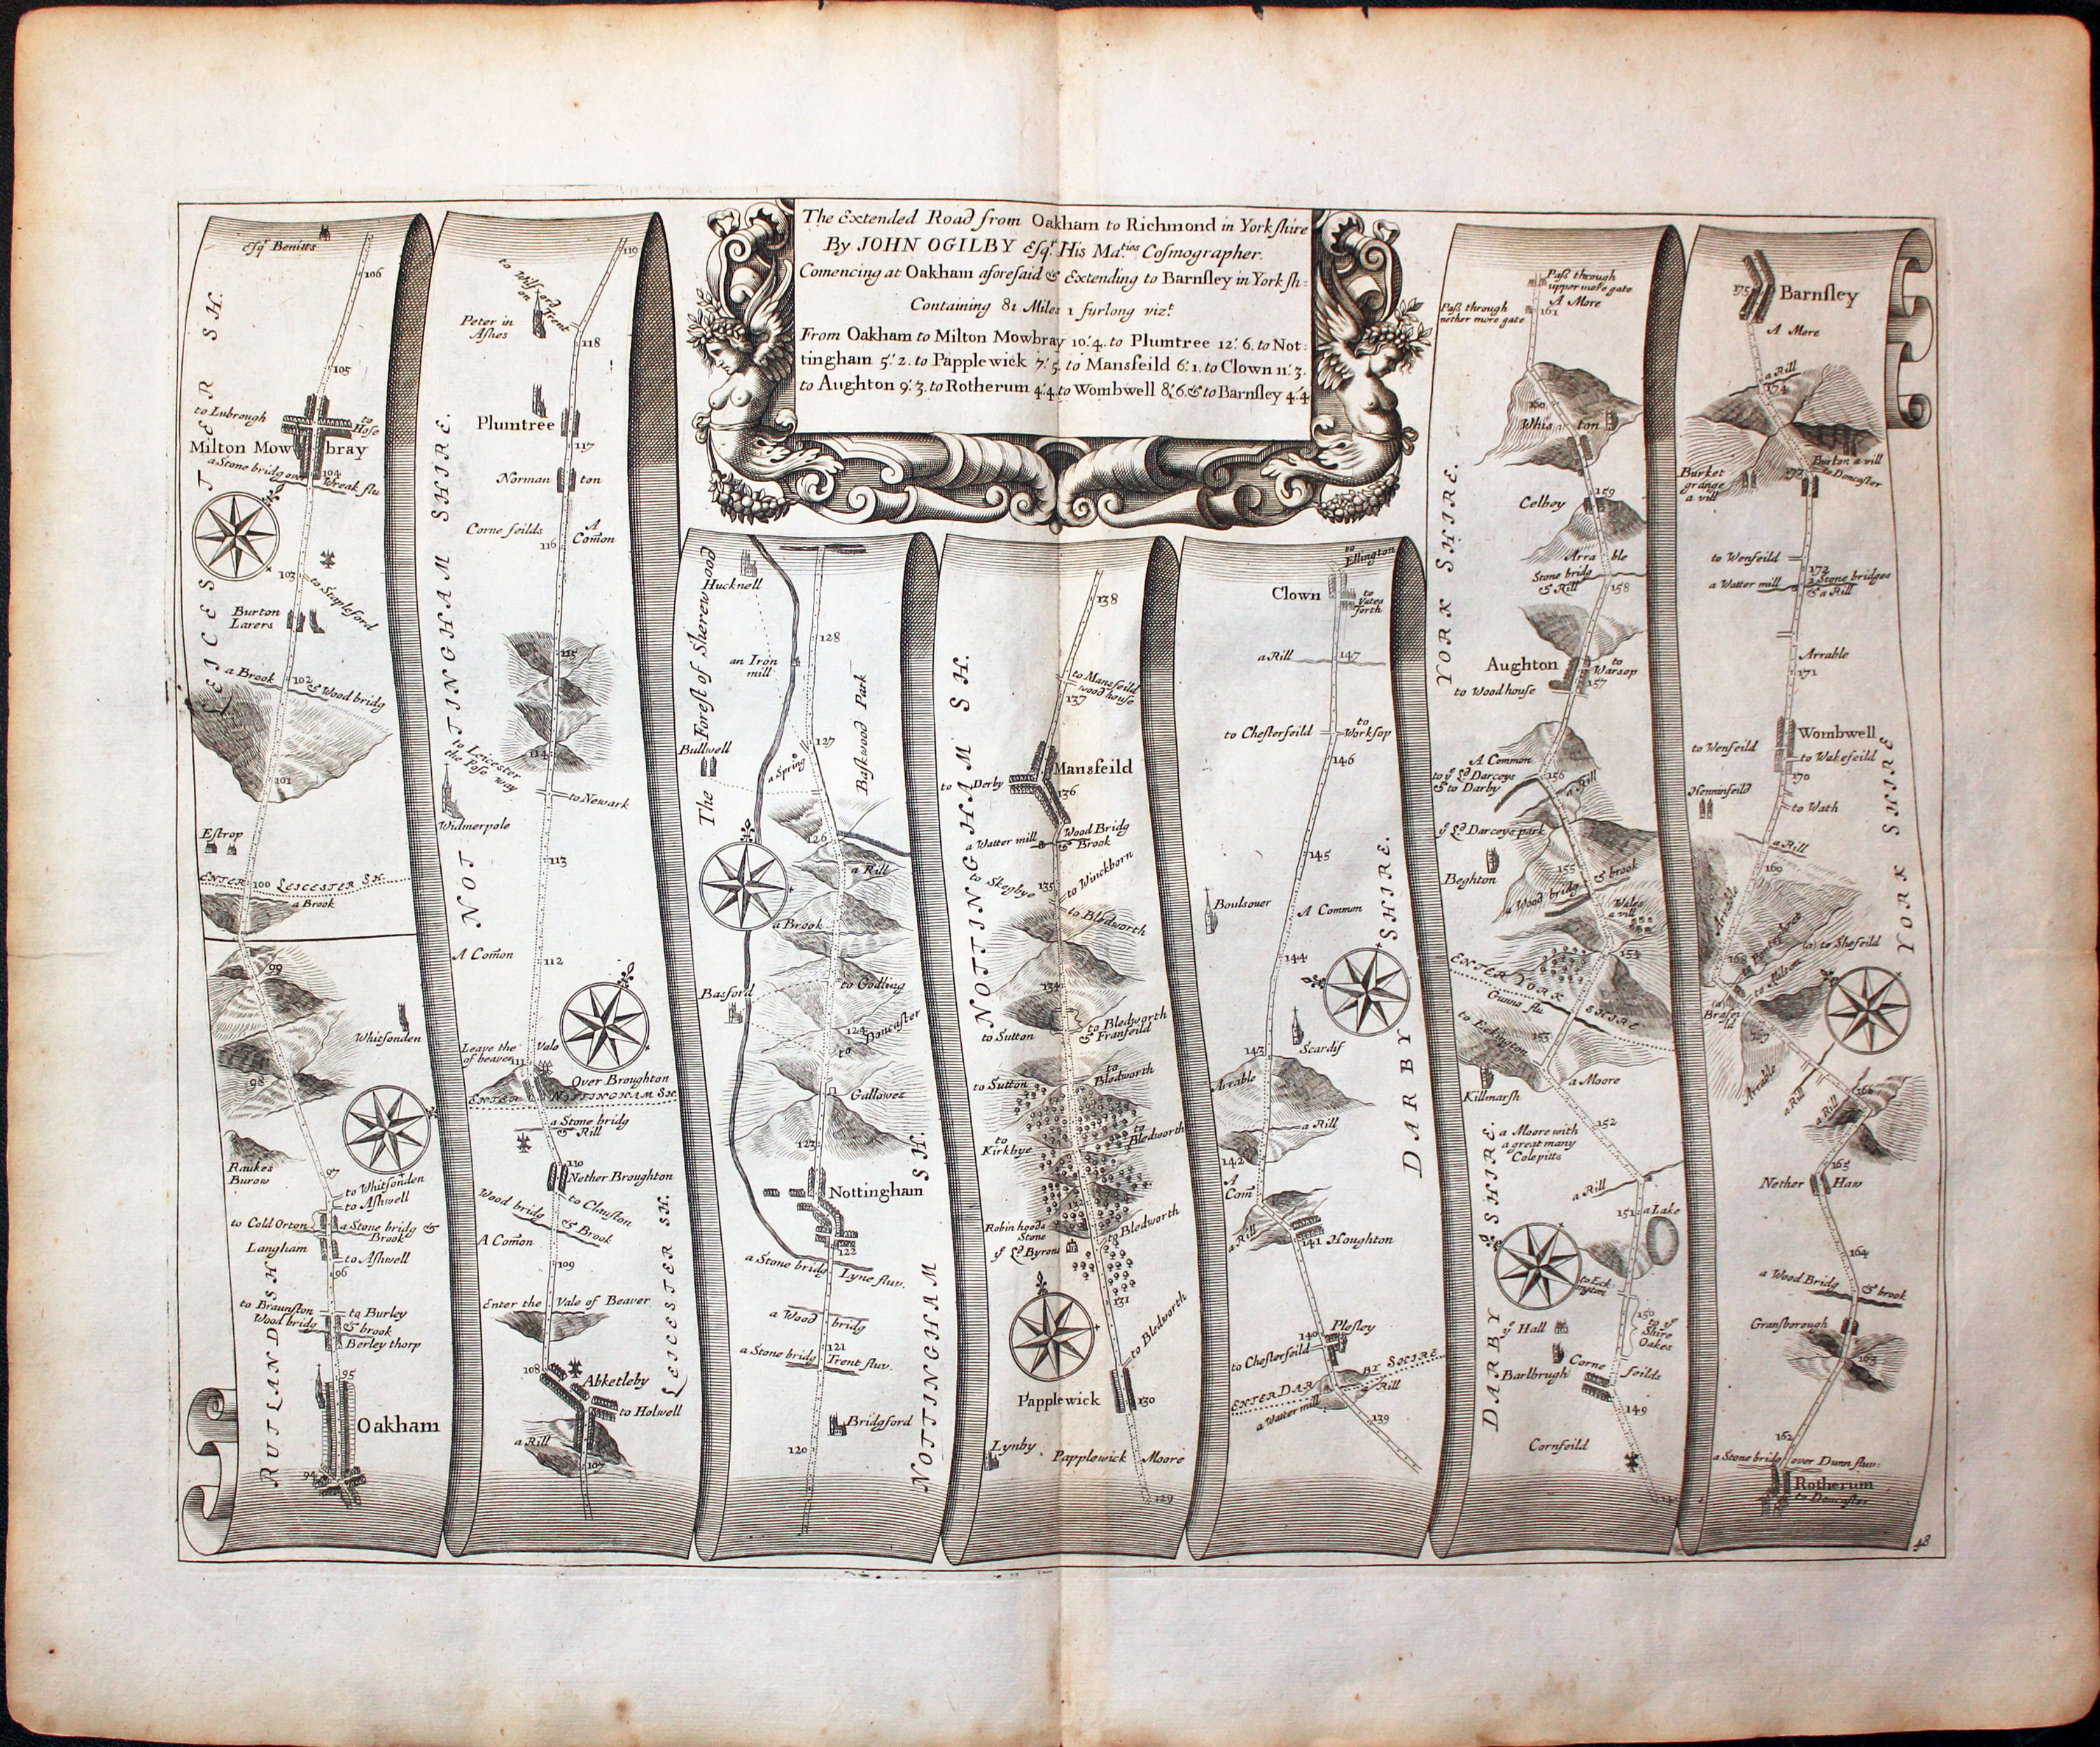 The Extended Road from Oakham to Richmond in Yorkshire
By JOHN OGILBY Esqr. His Maties Cosmographer.
Comencing at Oakham aforesaid & Extending to Barnsley in Yorksh:
Containing 81 Miles 1 furlong vizt.
From Oakham to Milton Mowbray 10'.4. to Plumtree 12'.6. to Not:
tingham 5'.2. to Papplewick 7'.5. to Mansfeild 6'.1. to Clown 11'.3.
to Aughton 9'.3. to Rotherum 4'.4. to Wombwell 8'.6. & to Barnsley 4'.4
Esqr. Benitts
106
105
to Lubrough
to Hose
Milton Mowbray
a Stone bridg over Wreak flu
104
103
to Stapleford
Burton
Larers
a Brook
102
& Wood bridg
101
Estrop
ENTER LEICESTER SH.
100
a Brook
99
Whitsonden
98
Raukes
Burow
97
to Whitsonden
to Ashwell
to Cold Orton
a Stone bridg &
Brook
Langham
to Ashwell
96
to Braunston
to Burley
Wood bridg
& brook
Berley thorp
95
Oakham
94
LEICESTER SH.
RUTLANDSH
119
to Wilford on Trent
Peter in
Ashes
118
Plumtree
117
Normanton
Corne feilds
A
Comon
116
115
to Leicester
the Fose way
114
to Newark
Widmerpole
113
A Comon
112
Leave the Vale
of beaver
111
Over Broughton
ENTER NOTTINGHAM SH.
a Stone bridg
& Rill
110
Nether Broughton
to Clauston
Wood bridg & Brook
A Comon
109
Enter the Vale of Beaver
108
Abketleby
to Holwell
a Rill
107
NOTTINGHAM SHIRE.
LEICESTER SH.
Hucknoll
128
an Iron
mill
127
Bullwell
a Spring
Baskwood Park
126
a Rill
a Brook
to Godling
Basford
124
to Doncaster
Gallowes
123
Nottingham
122
a Stone bridg
Lyne fluv.
a Wood bridg
121
a Stone bridg
Trent fluv.
Bridgford
120
The Forest of Sherewood
NOTTINGHAM SH.
138
to Mansfeild
wood house
137
Mansfeild
to Derby
136
Wood Bridg
a Watter mill
& Brook
to Skegbye
135
to Winckborn
to Bledworth
134
to Bledworth
& Franseild
to Sutton
to Sutton
to
Bledworth
to
Kirkbye
to
Bledworth
132
Robin hoods
Stone
to Bledworth
ye Ld Byron
131
to Bledworth
Papplewick
130
Lynby
Papplewick Moore
129
NOTTINGHAM SH.
to
Ellington
Clown
to
Yates
forth
a Rill
147
to Chesterfeild
to
Worksop
146
145
Boulsover
A Common
144
Scardif
143
Arrable
a Rill
142
A
Com
a Rill
141
Houghton
140
Plesley
to Chesterfeild
ENTER DARBY SHIRE
a Rill
a Watter mill
139
DARBY SHIRE.
Pass through
upper more gate
A More
Pass through
nether more gate
161
160
Whiston
159
Celboy
Arrable
Stone bridg
& Rill
158
Aughton
to
Warsop
to Woodhouse
157
A Common
to ye Ld Darceys
& to Darby
156
a Rill
ye Ld Darceys park
155
Beghton
a Wood bridg & brook
Wales
a vill
154
ENTER YORK SHIRE
Gunno flu
to Eckington
153
a Moore
Killmarsh
152
a Moore with
a great many
Colepitts
a Rill
151
a Lake
to Eck-
ington
150
to ye
Shire
Oakes
ye Hall
Corne feilds
Barlbrugh
149
Cornfeild
YORK SHIRE.
DARBY SHIRE.
175
Barnsley
A More
a Rill
174
Burton a vill
Burket
grange
a vill
173
to Doncaster
to Wenfeild
172
a Watter mill
2 Stone bridges
& a Rill
Arrable
171
Wombwell
to Wenfeild
to Wakefeild
170
Henninfeild
to Wath
a Rill
169
Arrable
to Shefeild
168
to Milton
167
Arrable
a Rill
a Rill
166
165
Nether Haw
164
a Wood Bridg & brook
Gransborough
163
162
a Stone bridg over Dunn fluv:
Rotherum
to Doncaster
YORK SHIRE
48